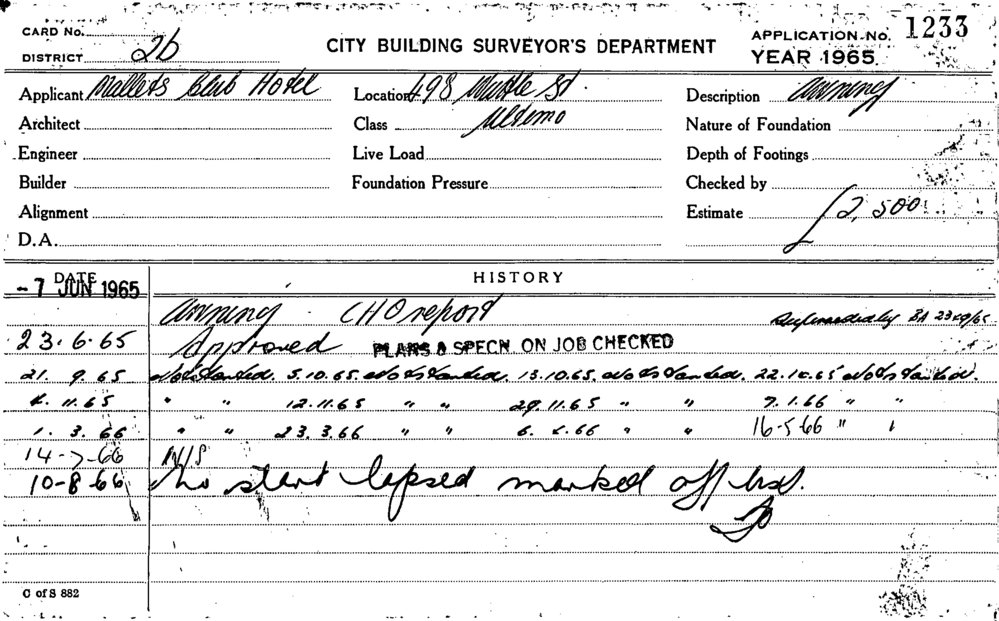 CARD No.
DISTRICT 2b
CITY BUILDING SURVEYOR'S DEPARTMENT
APPLICATION No. 1233
YEAR 1965.
Applicant Malletts Club Hotel Location 498 Wattle St Description Awning
Architect Class Ultimo Nature of Foundation
Engineer Live Load Depth of Footings
Builder Foundation Pressure Checked by
Alignment Estimate £2,500
D.A.
DATE HISTORY
-7 JUN 1965
Awning. CHO report BA 2349/65
23.6.65 Approved PLANS & SPECN. ON JOB CHECKED
21. 9. 65 Not started. 5.10.65. Not started. 13.10.65. Not started. 22.10.65 Not started.
4. 11. 65 " " 12.11.65 " " 29.11.65 " " 7.1.66 " "
1. 3. 66 " " 23.3.66 " " 6. 4. 66 " " 16-5-66 " "
14-7-66 N/S
10-8-66 No start lapsed marked off list.
C of S 882